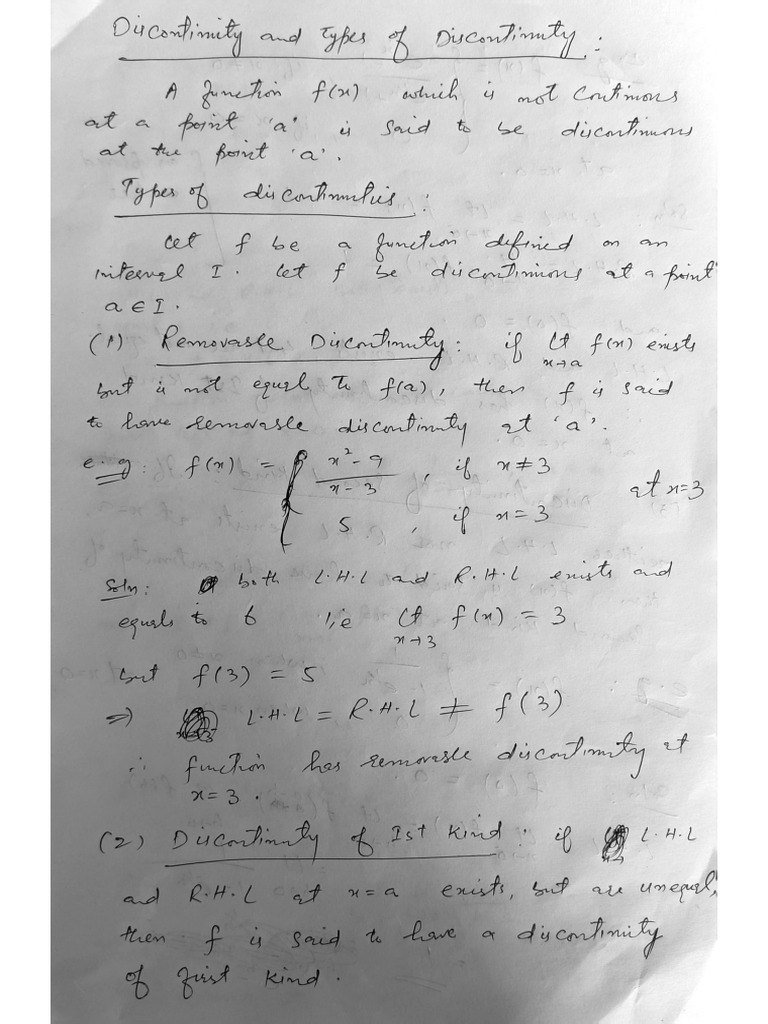 Discontinuity and Types of Discontinuity :
A function f(x) which is not continous
at a point 'a' is said to be discontinuous
at the point 'a'.
Types of discontinuities :
Let f be a function defined on an
interval I. Let f be discontinuous at a point
a ∈ I.
(1) Removable Discontinuity : if Lt x→a f(x) exists
but is not equal to f(a), then f is said
to have removable discontinuity at 'a'.
e.g: f(x) = { (x² - 9)/(x - 3), if x ≠ 3
5, if x = 3 at x=3
Soln: both L.H.L and R.H.L exists and
equals to 6 i,e Lt x→3 f(x) = 3
but f(3) = 5
⇒ L.H.L = R.H.L ≠ f(3)
∴ function has removable discontinuity at
x=3.
(2) Discontinuity of Ist Kind : if L.H.L
and R.H.L at x=a exists, but are unequal,
then f is said to have a discontinuity
of first kind.